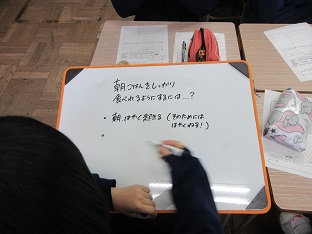 朝ごはんをしっかり
食べれるようにするには…?
・朝、はやく起きる(そのためには
はやくねる!)
・